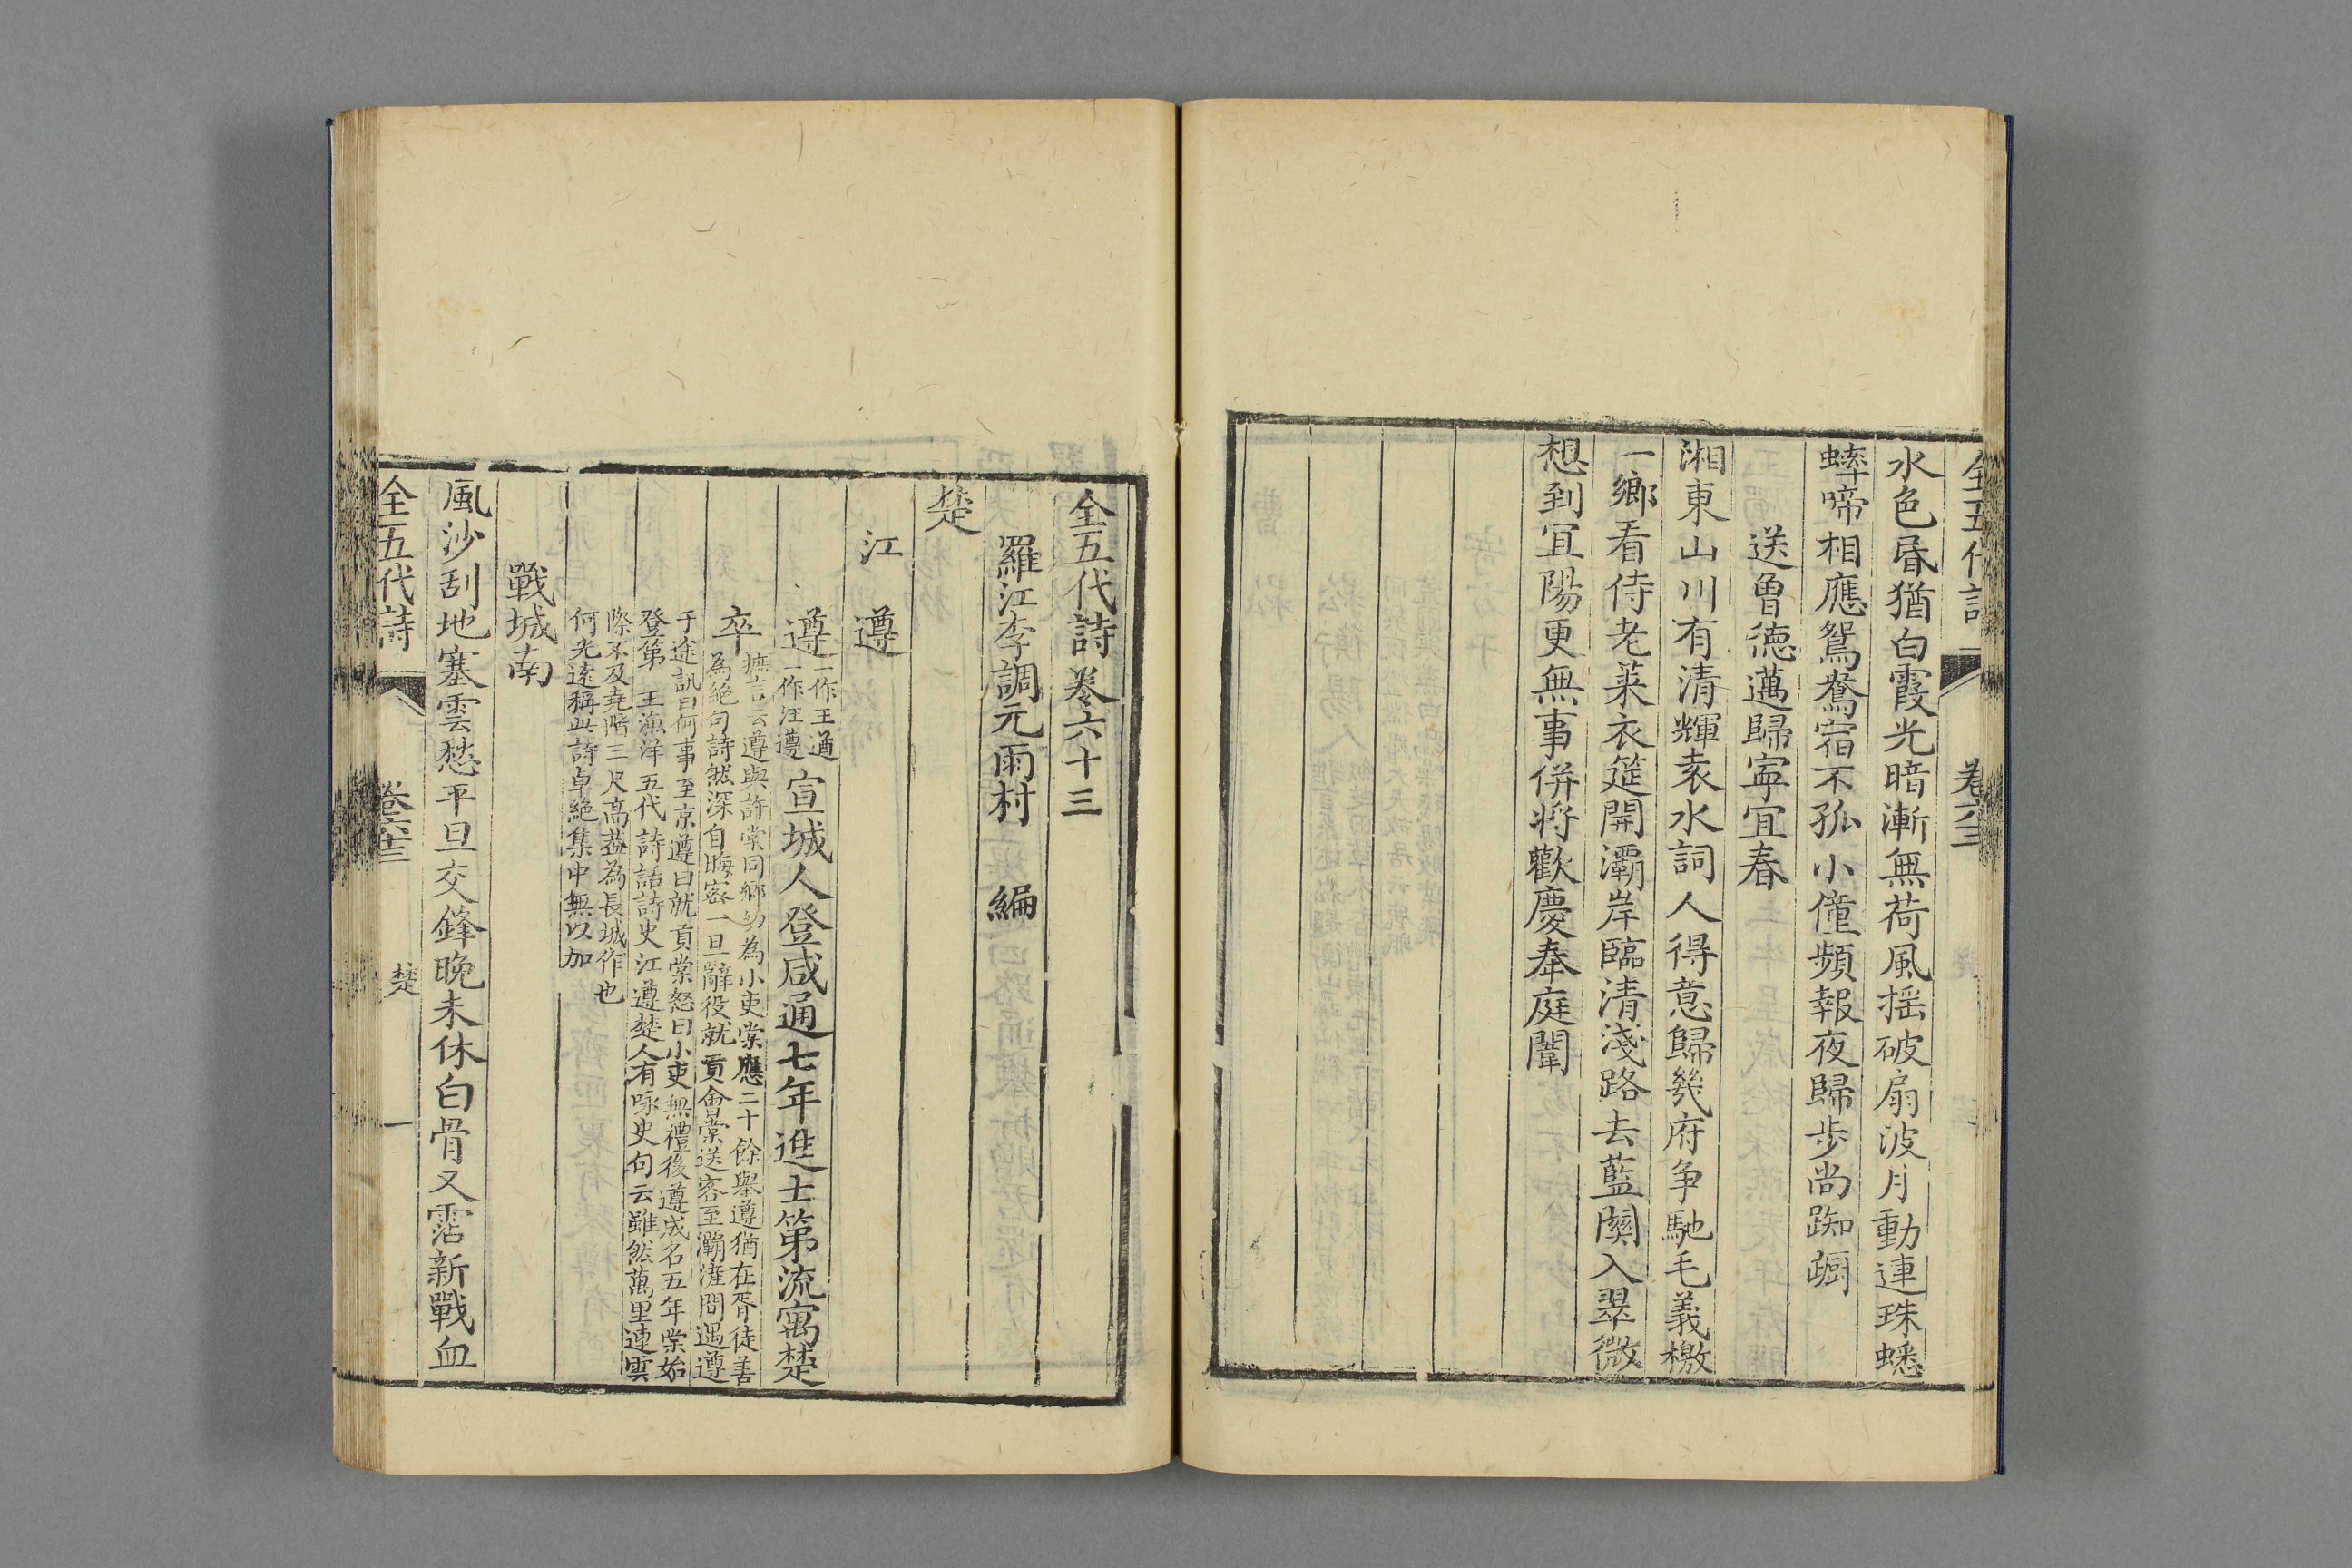 全五代詩
卷六十二
水色昏猶白霞光暗漸無荷風揺破扇波月動連珠蟋
蟀啼相應鴛鴦宿不孤小僮頻報夜歸步尚踟蹰
送魯德邁歸寧宜春
湘東山川有清輝袁水詞人得意歸幾府争馳毛義檄
一鄉看侍老萊衣筵開灞岸臨清淺路去藍關入翠微
想到宜陽更無事併將歡慶奉庭闈
全五代詩卷六十三
羅江李調元雨村 編
楚
江 遵
遵一作王遒
一作汪遵宣城人登咸通七年進士第流寓楚
卒摭言云遵與許棠同鄉幼為小吏棠應二十餘舉遵猶在胥徒善
為絶句詩然深自晦密一旦辭役就貢會棠送客至灞滻間遇遵
于途訊曰何事至京遵曰就貢棠怒曰小吏無禮後遵成名五年棠始
登第 王漁洋五代詩話詩史江遵楚人有咏史句云雖然萬里連雲
際不及堯階三尺高葢為長城作也
何光遠稱此詩卓絶集中無以加
戰城南
風沙刮地塞雲愁平旦交鋒晚未休白骨又霑新戰血
全五代詩
卷六十三
楚
一